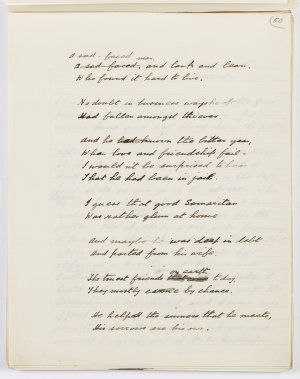 50
a sad-faced man,
A sad-faced, and lank and lean,
Who found it hard to live.
No doubt in business ways he
Had fallen amongst thieves.
And he had known the bitter year,
When love and friendship fail—
I wouldn't be surprised to hear
That he had been in jail.
I guess that good Samaritan
Was rather glum at home
And maybe he was deep in debt
And parted from his wife.
The truest friends on earth to day,
They mostly came by chance.
He helped the sinners that he meets,
His sorrows are his own.